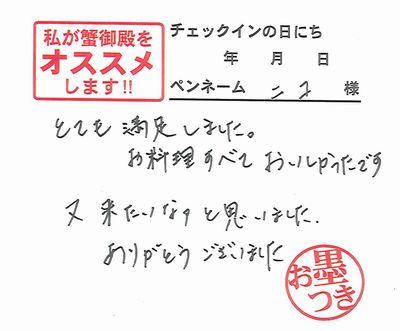 私が蟹御殿を
オススメ
します!!
チェックインの日にち
年 月 日
ペンネーム ニコ 様
とても満足しました。
お料理すべておいしかったです
又来たいなぁと思いました.
ありがとうございました
お墨つき